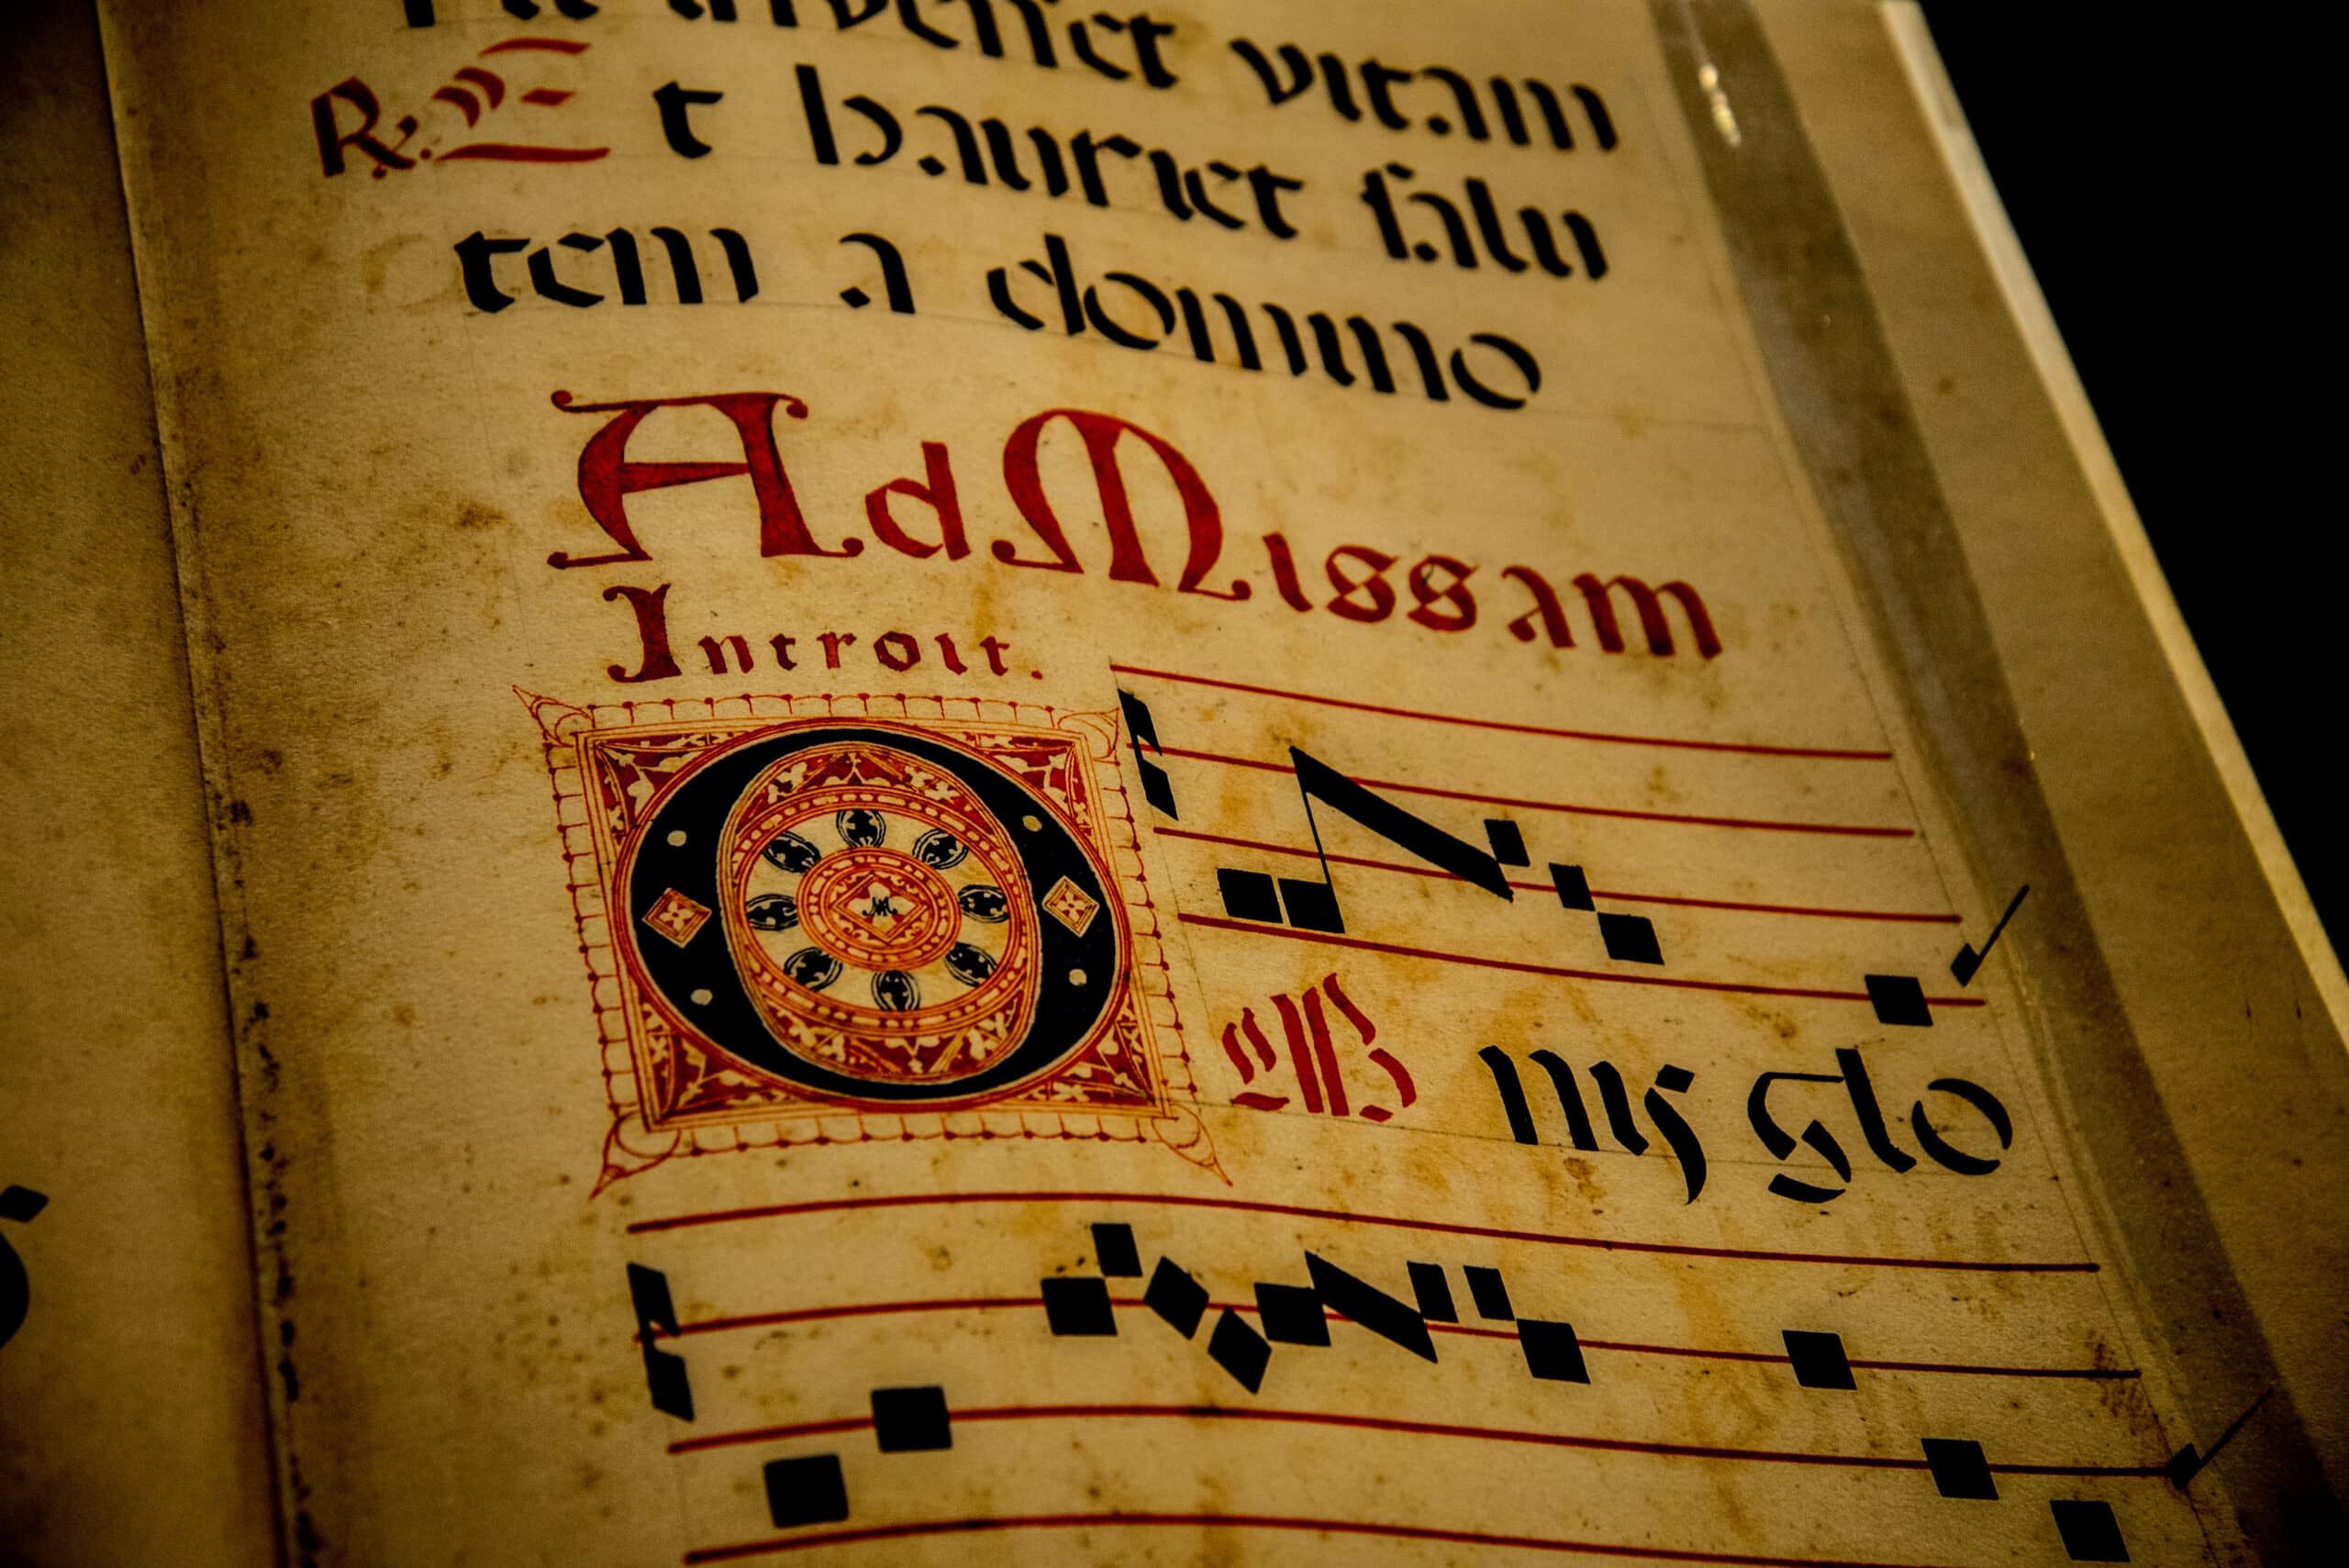 rit inveniet vitam
℟. Et hauriet salu
tem a domino
Ad Missam
Introit.
OM nis glo